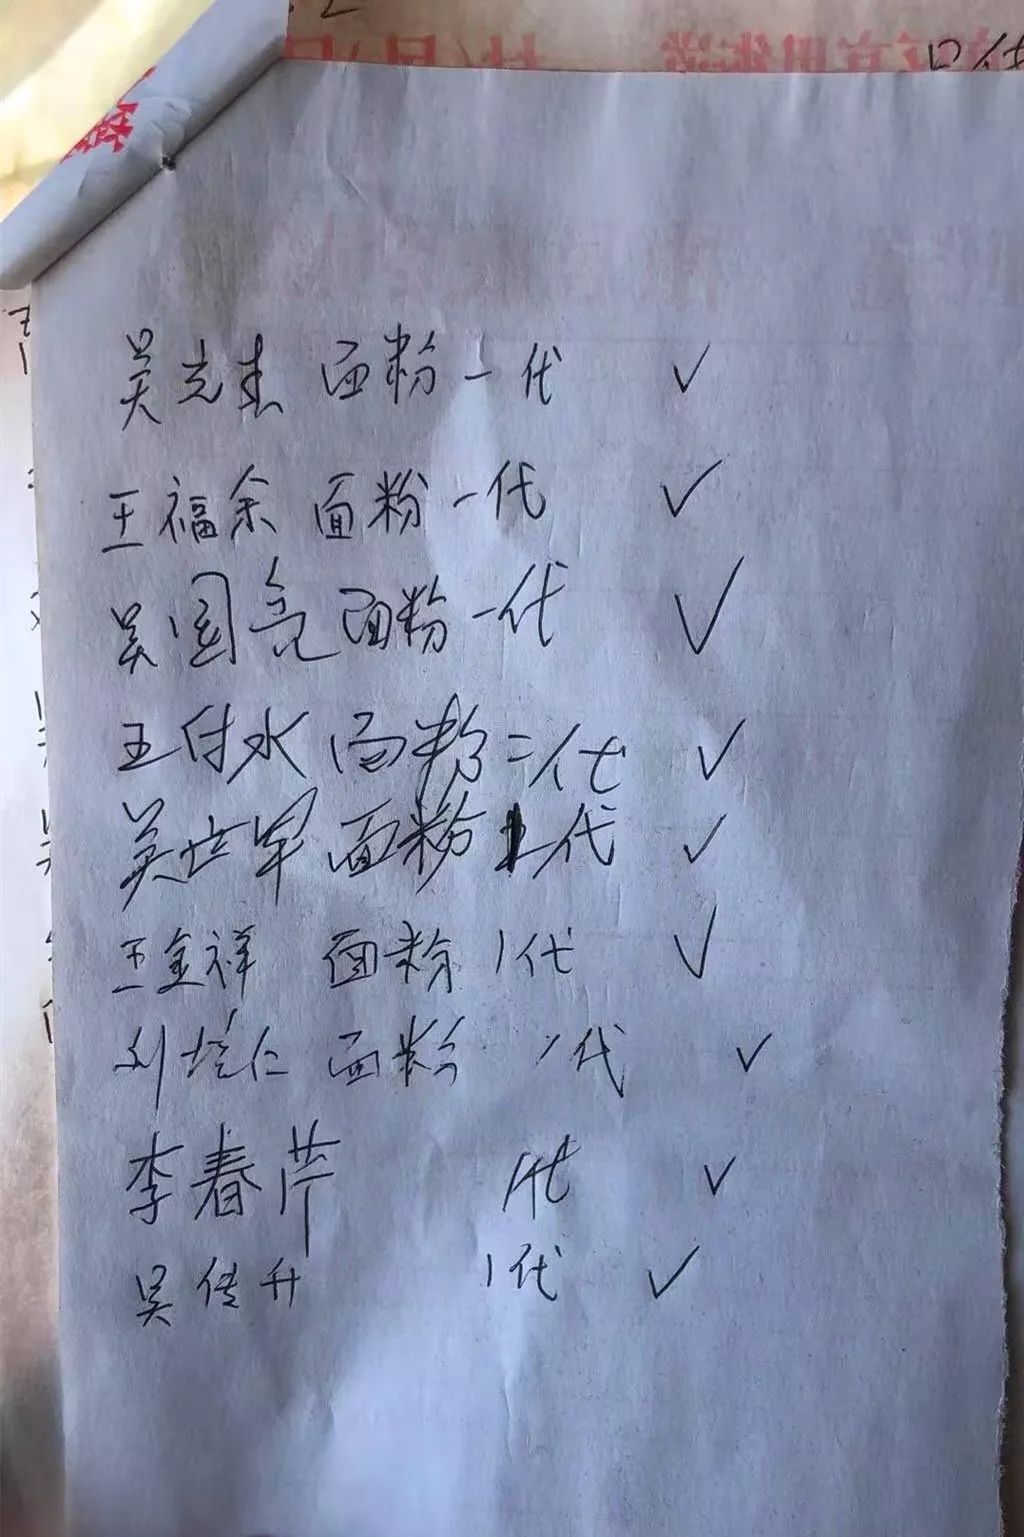 吴立杰 面粉一代 ✓
王福余 面粉一代 ✓
吴国亮 面粉一代 ✓
王付水 面粉二代 ✓
吴世军 面粉 代 ✓
王金祥 面粉 1代 ✓
刘培仁 面粉 1代 ✓
李春芹 1代 ✓
吴传升 1代 ✓